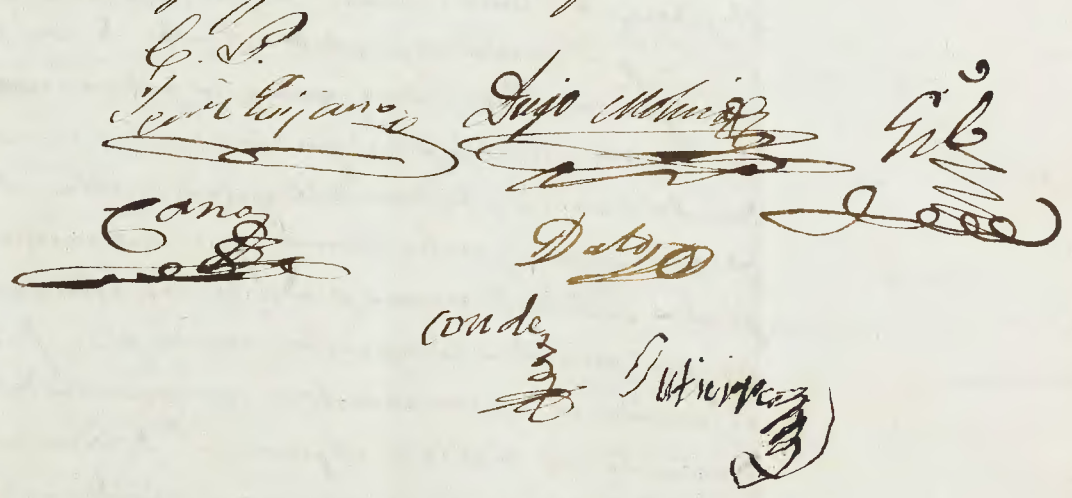 C. P.
Quijano Diego Molina Gil
Cano Dato
Conde
Gutierrez